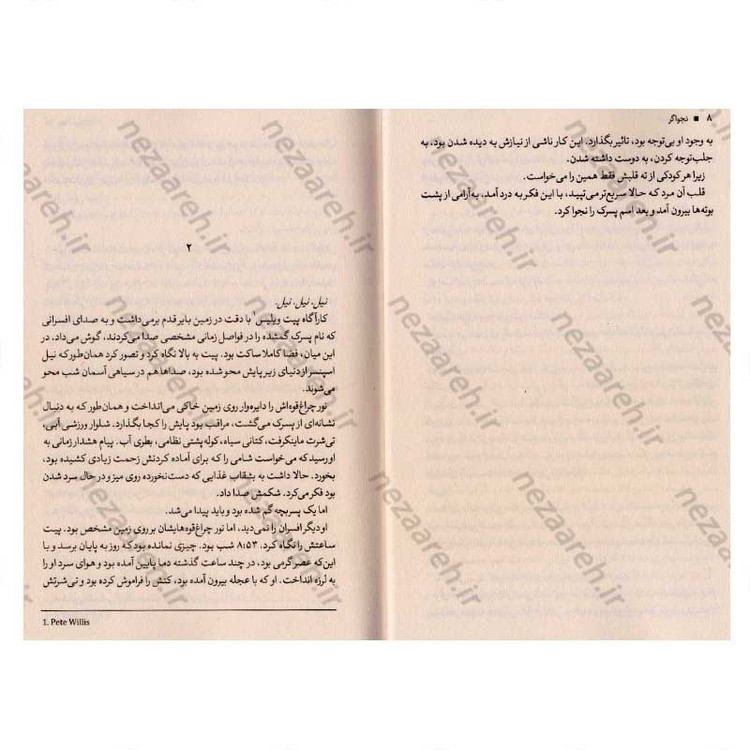 ۸ ■ نجواگر
به وجود او بی‌توجه بود، تاثیر بگذارد. این کار ناشی از نیازش به دیده شدن بود، به
جلب‌توجه کردن، به دوست داشته شدن.
زیرا هر کودکی از ته قلبش فقط همین را می‌خواست.
قلب آن مرد که حالا سریع‌تر می‌تپید، با این فکر به درد آمد. به‌آرامی از پشت
بوته‌ها بیرون آمد و بعد اسم پسرک را نجوا کرد.
۲
نیل. نیل. نیل.
کارآگاه پیت ویلیس با دقت در زمین بایر قدم برمی‌داشت و به صدای افسرانی
که نام پسرک گمشده را در فواصل زمانی مشخصی صدا می‌کردند، گوش می‌داد. در
این میان، فضا کاملا ساکت بود. پیت به بالا نگاه کرد و تصور کرد همان‌طور که نیل
اسپنسر از دنیای زیر پایش محو شده بود، صداها هم در سیاهی آسمان شب محو
می‌شوند.
نور چراغ‌قوه‌اش را دایره‌وار روی زمین خاکی می‌انداخت و همان‌طور که به دنبال
نشانه‌ای از پسرک می‌گشت، مراقب بود پایش را کجا بگذارد. شلوار ورزشی آبی،
تی‌شرت ماینکرفت، کتانی سیاه، کوله‌پشتی نظامی، بطری آب. پیام هشدار زمانی به
او رسید که می‌خواست شامی را که برای آماده کردنش زحمت زیادی کشیده بود،
بخورد. حالا داشت به بشقاب غذایی که دست‌نخورده روی میز و در حال سرد شدن
بود فکر می‌کرد. شکمش صدا داد.
اما یک پسربچه گم شده بود و باید پیدا می‌شد.
او دیگر افسران را نمی‌دید، اما نور چراغ‌قوه‌هایشان بر روی زمین مشخص بود. پیت
ساعتش را نگاه کرد. ۸:۵۳ شب بود. چیزی نمانده بود که روز به پایان برسد و با
این‌که عصر گرمی بود، در چند ساعت گذشته دما پایین آمده بود و هوای سرد او را
به لرزه انداخت. او که با عجله بیرون آمده بود، کتش را فراموش کرده بود و تی‌شرتش
1. Pete Willis
nezaareh.ir
nezaareh.ir
nezaareh.ir
nezaareh.ir
nezaareh.ir
nezaareh.ir
nezaareh.ir
nezaareh.ir